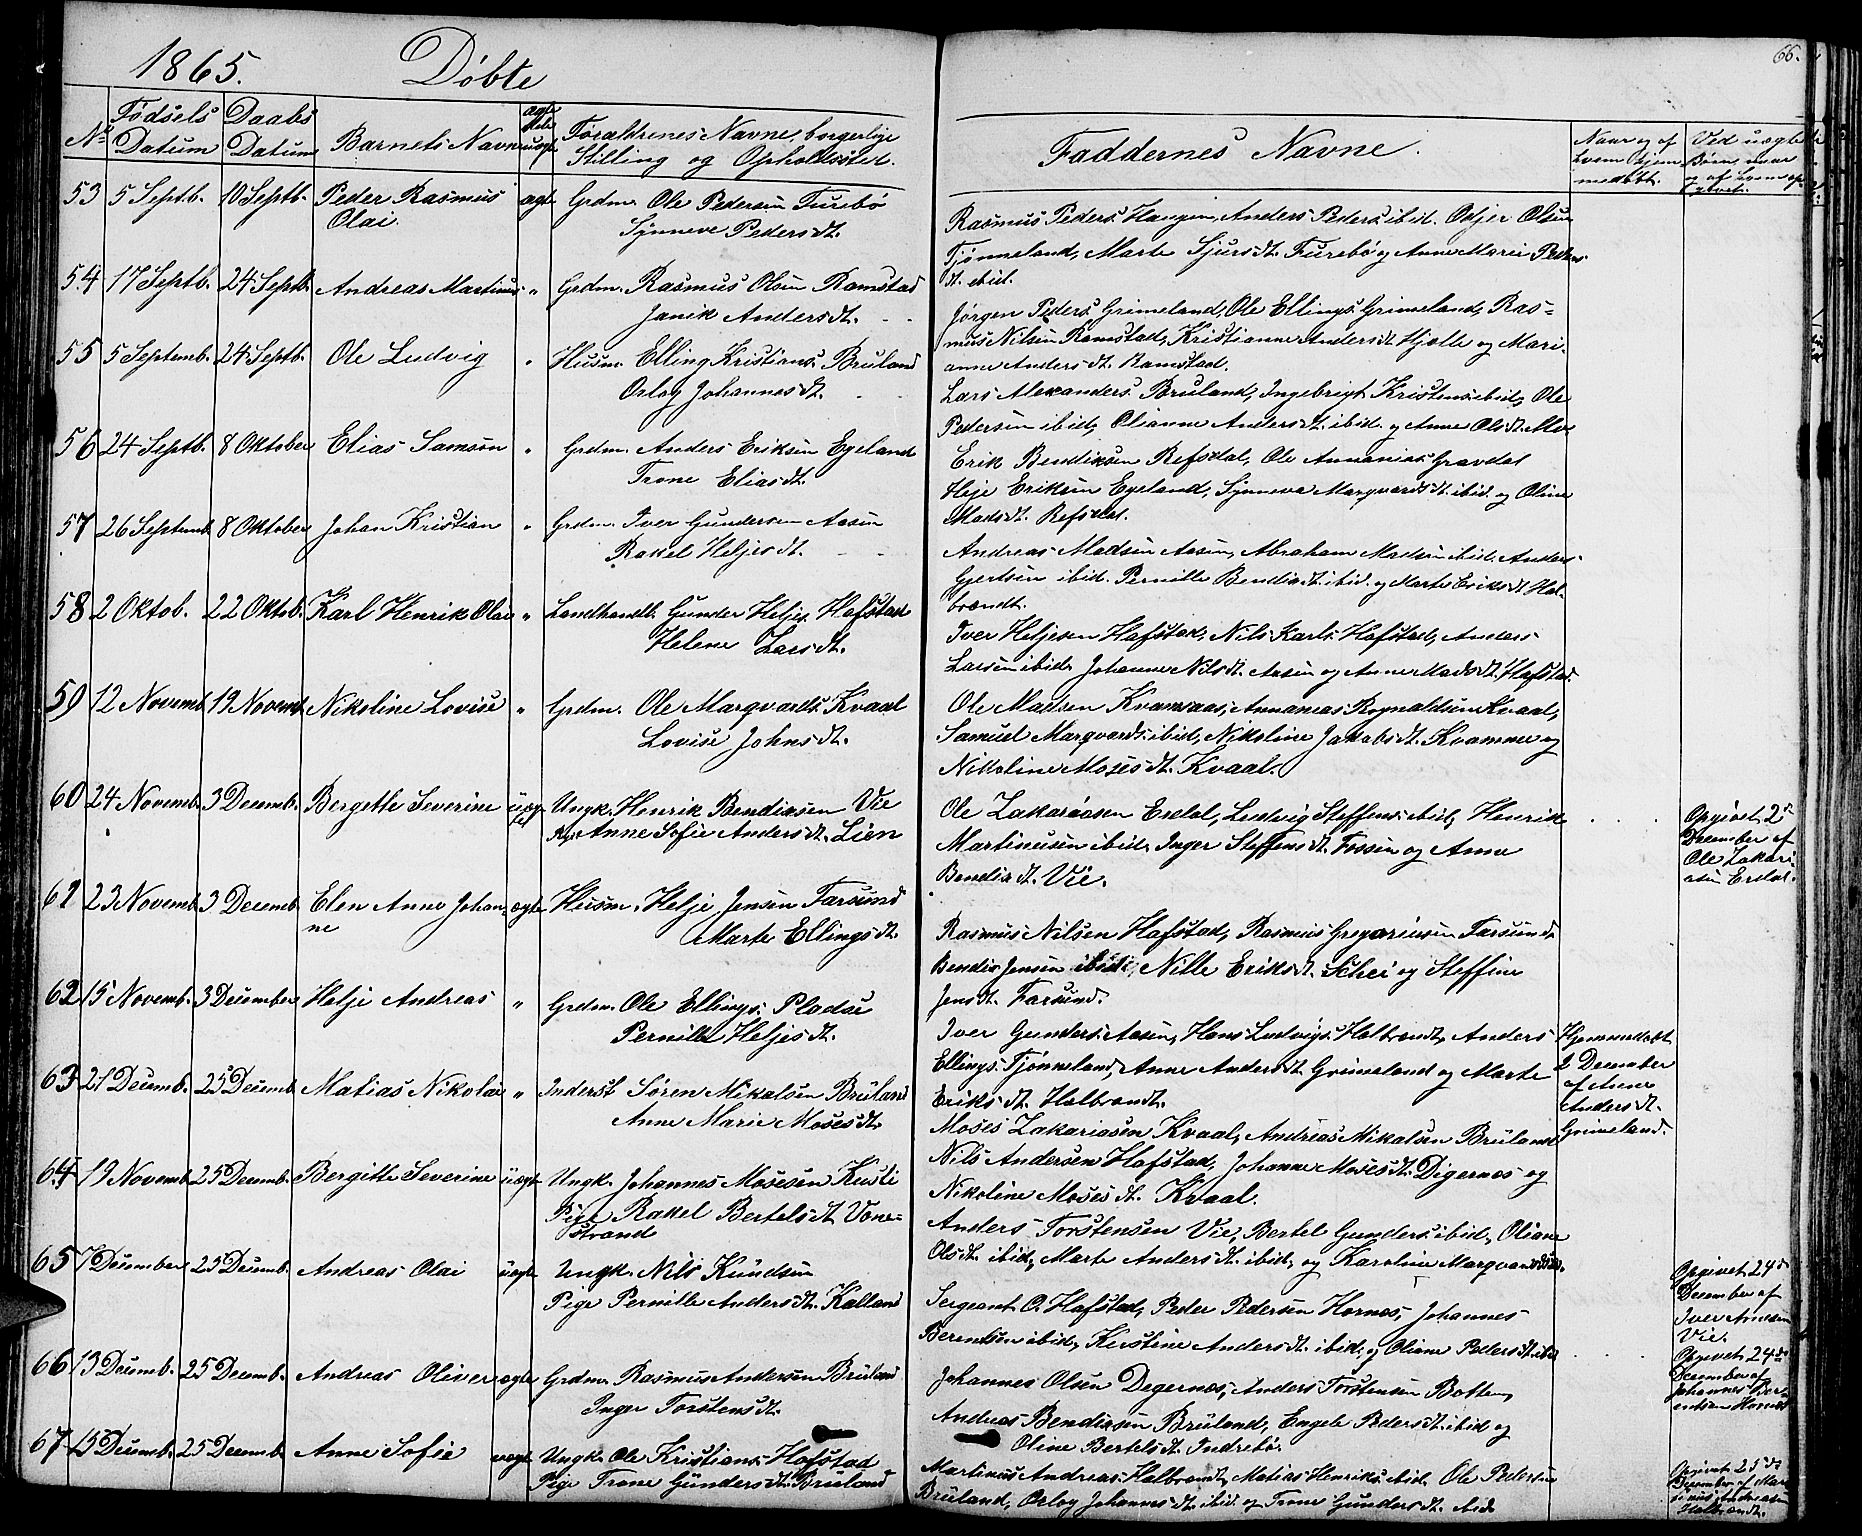 1865. Døbte
66.
No
Fødsels Datum
Daabs Datum
Barnets Navn
Forældrenes Navne, borgerlige
Stilling og Opholdssted.
Faddernes Navne.
Naar og af
hvem hjem
medøbt.
Ved uægte
Børn, naar
og af hvem op
givet.
53 5 Septb. 10 Septb. Peder Rasmus ægte Grdm. Ole Pedersen Furebø
Olai. Synneve Pedersdt.
Rasmus Peders. Haugen, Anders Peders. ibid. Odjer Olsen
Tjønneland, Marte Sjursdt. Furebø og Anne Marie Peders
dt. ibid.
54 17 Septb. 24 Septb. Andreas Martinus " Grdm. Rasmus Olsen Ramstad
Janik Andersdt.
Jørgen Peders. Grimeland, Ole Ellings. Grimeland, Ras-
mus Nilsen Ramstad, Kristianne Andersdt. Hjelle og Mari-
anne Andersdt. Ramstad.
55 5 Septemb. 24 Septb. Ole Ludvig " Husm. Elling Kristians. Bruland
Oslog Johannesdt.
Lars Alexanders. Bruland, Ingebrigt Kristens. ibid, Ole
Pedersen ibid, Olianne Andersdt. ibid. og Anne Olsdt.
56 24 Septb. 8 Oktober Elias Samson " Grdm. Anders Eriksen Egeland
Trone Eliasdt.
Erik Bendiksen Refsdal, Ole Annanias. Gravdal
Helje Eriksen Egeland, Synneva Marqvardsdt. ibid. og Oline
Madsdt. Refsdal.
57 26 Septemb. 8 Oktober Johan Kristian " Grdm. Iver Gundersen Aasen
Rakel Heljesdt.
Andreas Madsen Aasen, Abraham Madsen ibid. Anders
Gjertsen ibid. Pernille Bendixdt. ibid. og Marte Eriksdt. Hal-
brændt.
58 2 Oktob. 22 Oktob. Karl Henrik Olai " Landhandl. Gunder Heljes. Hafstad
Helene Larsdt.
Iver Heljesen Hafstad, Nils Karls. Hafstad, Anders
Larsen ibid. Johanne Nilsdt. Aasen og Anne Madsdt. Hafstad.
59 12 Novemb. 19 Novemb. Nikoline Lovise " Grdm. Ole Marqvards. Kvaal
Lovise Johnsdt.
Ole Madsen Kvamsaas, Annanias Rognaldsen Kvaal,
Samuel Marqvards. ibid, Nikoline Jakobsdt. Kvamme og
Nikoline Mosesdt. Kvaal.
60 24 Novemb. 3 Decemb. Bergitte Severine uægte Ungk. Henrik Bendixsen Vie
Pige Anne Sofie Andersdt. Lien
Ole Zakariasen Erdal, Ludvig Steffens. ibid, Henrik
Martinusen ibid. Inger Steffensdt. Fossen og Anne
Bendixdt. Vie.
Opgivet 2d
December af
Ole Zakari-
asen Erdal.
61 23 Novemb. 3 Decemb. Elen Anne Johan- ægte Husm. Helje Jensen Farsund
ne Marte Ellingsdt.
Rasmus Nilsen Hafstad, Rasmus Gregoriusen Farsund
Bendix Jensen ibid, Nille Eriksdt. Schei og Steffine
Jensdt. Farsund.
62 15 Novemb. 3 December Helje Andreas " Grdm. Ole Ellings. Pladse
Pernille Heljesdt.
Iver Gunders. Aasen, Hans Ludvigs. Halbrændt, Anders
Ellings. Tjønneland, Anne Andersdt. Grimeland og Marte
Eriksdt. Halbrændt.
Hjemmedøbt
2 December
af Anne
Andersdt.
Grimeland.
63 21 Decemb. 25 Decemb. Matias Nikolai " Inderst Søren Mikalsen Bruland
Anne Marie Mosesdt.
Moses Zakariasen Kvaal, Andreas Mikalsen Bruland
Nils Andersen Hafstad, Johanne Mosesdt. Digernæs og
Nikoline Mosesdt. Kvaal.
64 19 Novemb. 25 Decemb. Bergitte Severine uægte Ungk. Johannes Mosesen Kusli
Pige Rakel Bertelsdt. Vone-
strand
Anders Torstensen Vie, Bertel Gunders. ibid, Oliane
Olsdt. ibid, Marte Andersdt. ibid, og Karoline Marqvardsdt. ibid.
Opgivet 24d
December af
Iver Andersen
Vie.
65 7 December 25 Decemb. Andreas Olai uægte Ungk. Nils Knudsen
Pige Pernille Andersdt. Kalland
Sergeant O. Hafstad, Peder Pedersen Hornæs, Johannes
Berentsen ibid, Kerstine Andersdt. ibid. og Oliane Pedersdt. ibid
Opgivet 24de
December af
Johannes Ber-
entsen Hornæs
66 13 Decemb. 25 Decemb. Andreas Oliver ægte Grdm. Rasmus Andersen Bruland
Inger Torstensdt.
Johannes Olsen Degernæs, Anders Torstensen Botten,
Andreas Bendixsen Bruland, Engele Pedersdt. ibid og
Oline Bertelsdt. Indrebø.
67 15 Decemb. 25 Decemb. Anne Sofie uægte Ungk. Ole Kristians. Hafstad
Pige Trone Gundersdt. Bruland
Martinus Andreas. Halbrændt, Matias Henriks. ibid. Ole Pedersen
Bruland, Oslog Johannesdt. ibid. og Trone Gundersdt. ibid
Opgivet 25de
December af Mar-
tinus Andreasen
Halbrændt.